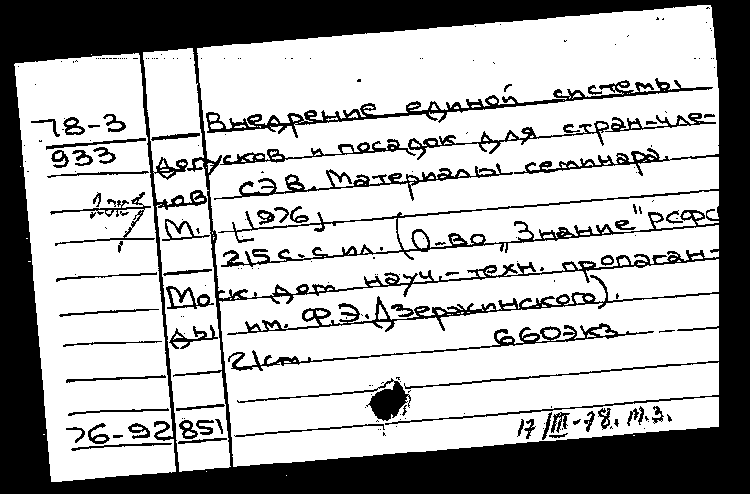 78-3
933
Внедрение единой системы
допусков и посадок для стран-чле-
нов СЭВ. Материалы семинара.
М., [1976].
215 с. с ил. (О-во „Знание" РСФС
Моск. дом науч.-техн. пропаган-
ды им. Ф.Э.Дзержинского).
21 см. 660 экз.
76-92851
17 III-78. М.З.